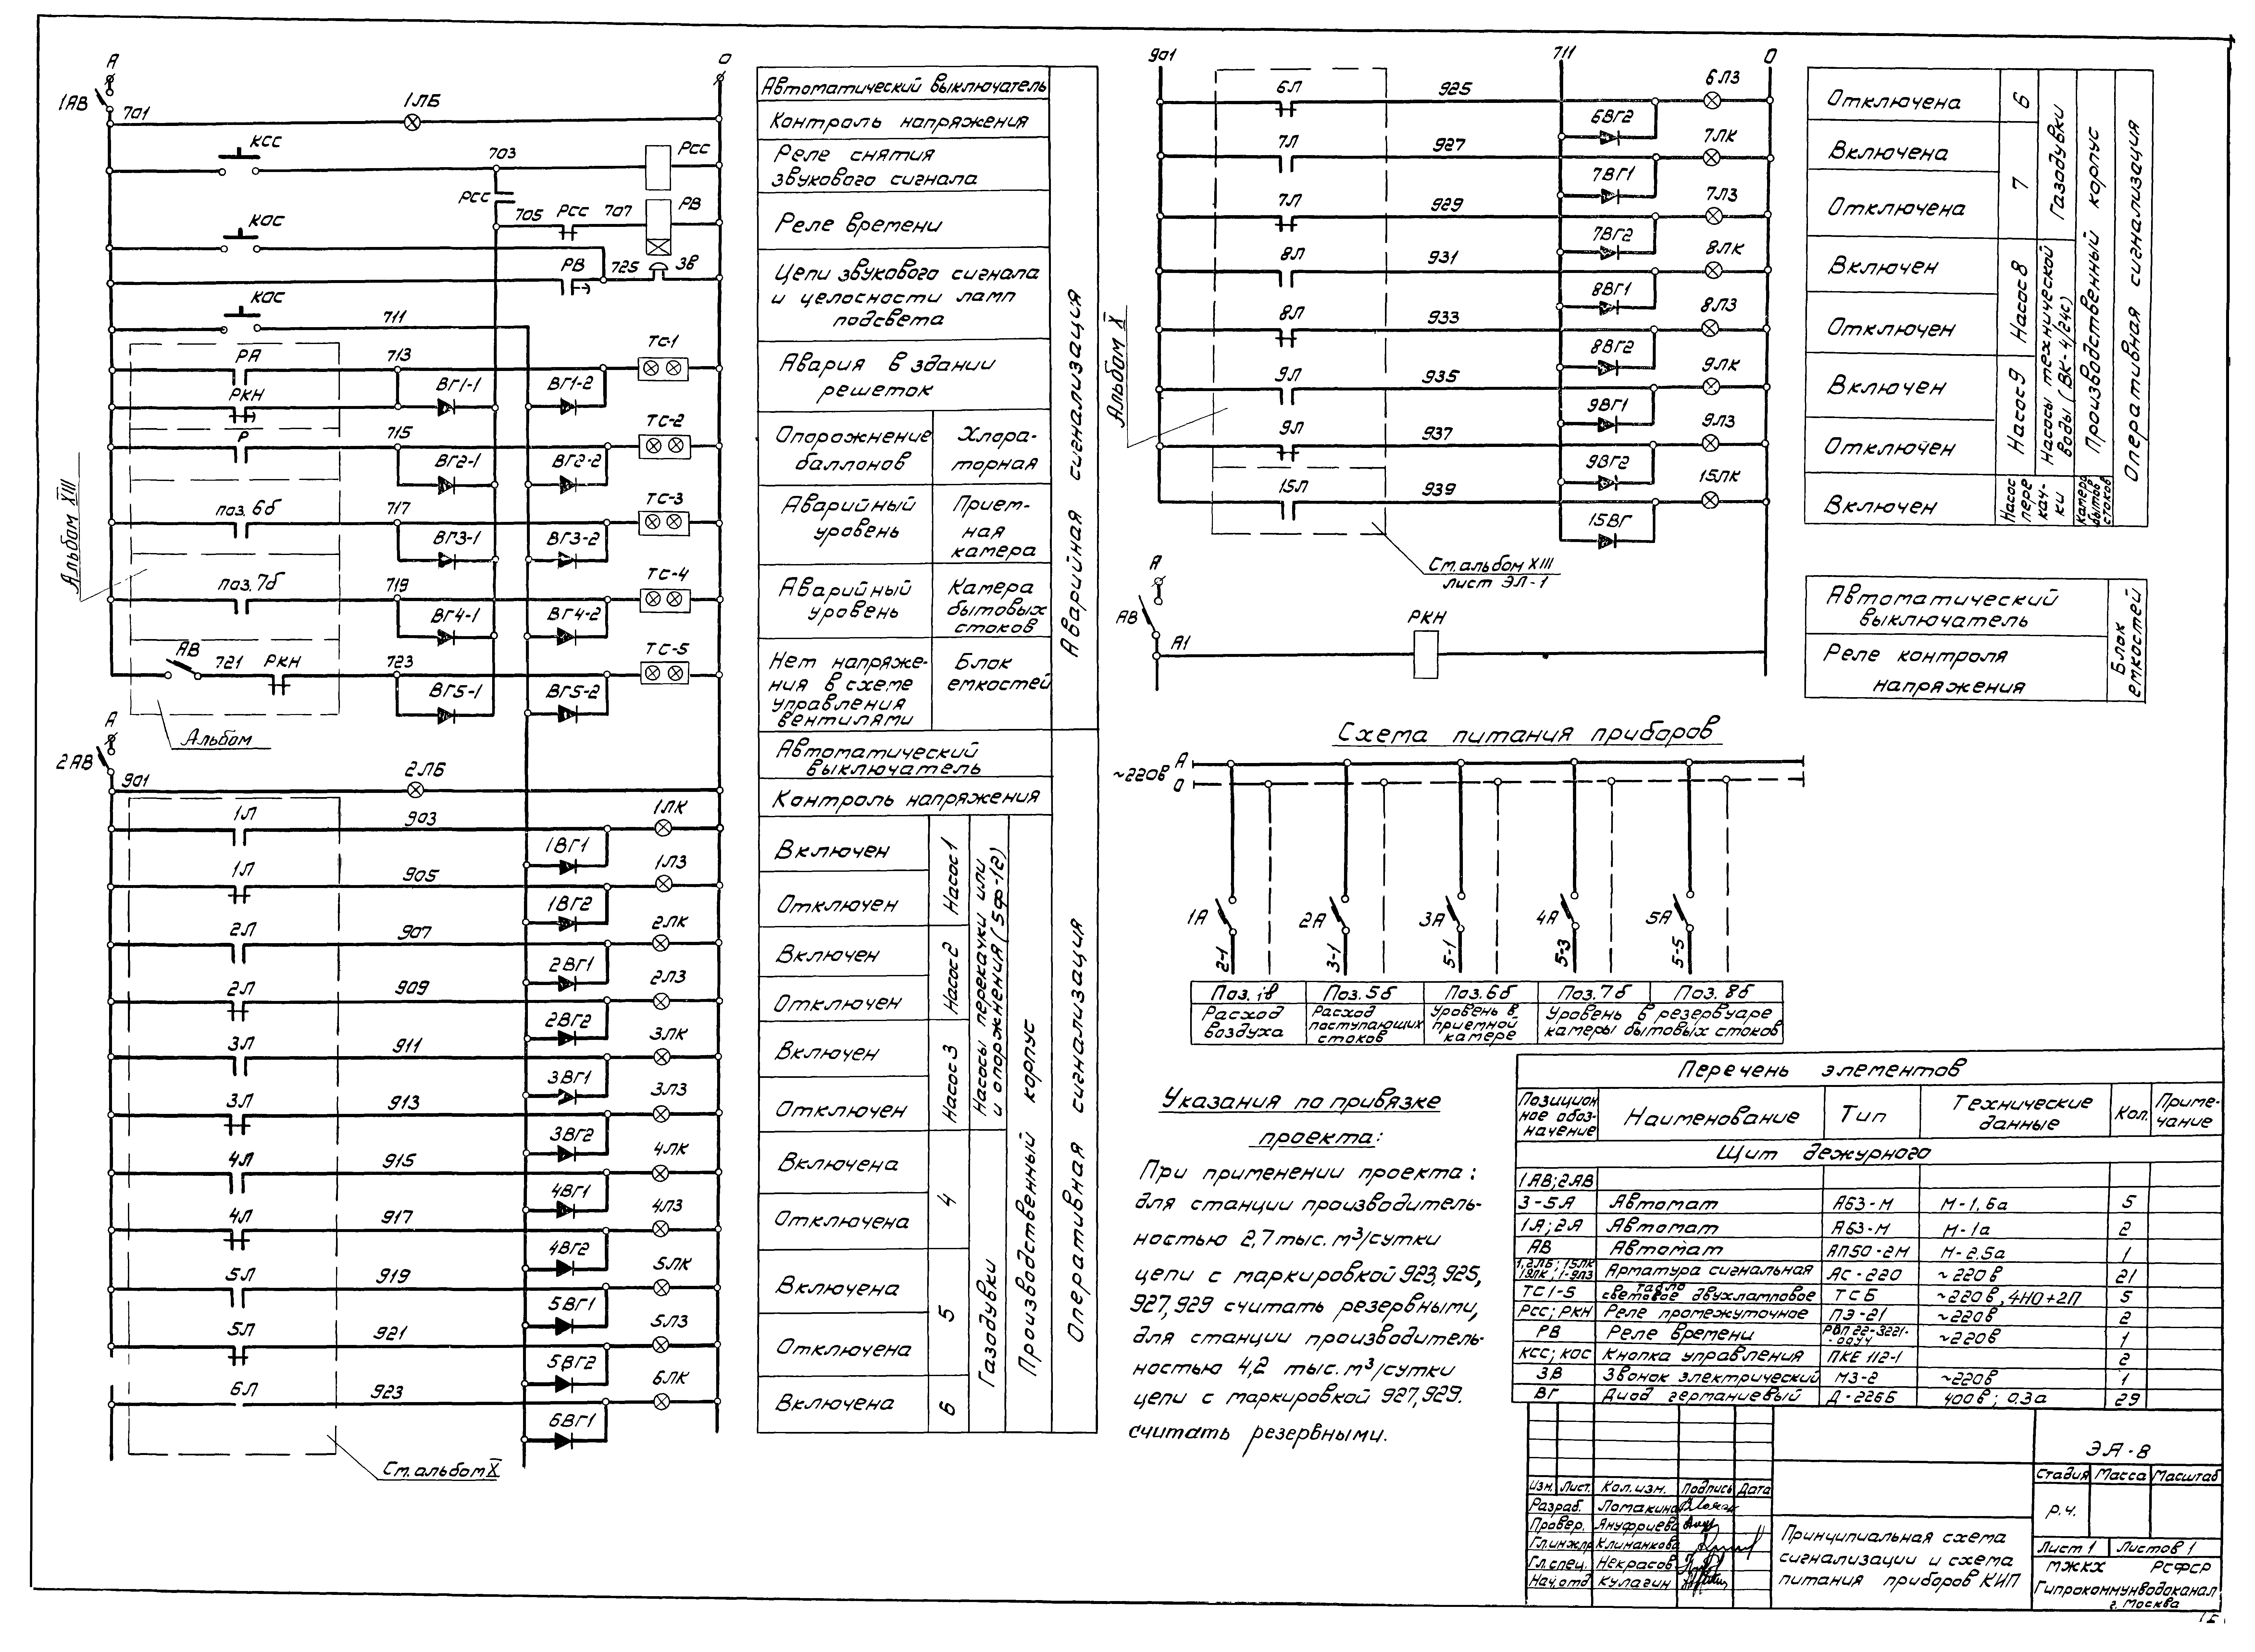 А
О
1АВ
701
1ЛБ
КСС
703
РСС
РСС
705
РСС
707
РВ
КОС
РВ
725
ЗВ
КОС
711
РА
713
ТС-1
РКН
ВГ1-1
ВГ1-2
Р
715
ТС-2
ВГ2-1
ВГ2-2
Альбом XIII
поз. 6б
717
ТС-3
ВГ3-1
ВГ3-2
поз. 7б
719
ТС-4
ВГ4-1
ВГ4-2
АВ
721
РКН
723
ТС-5
ВГ5-1
ВГ5-2
Альбом
А
2АВ
901
2ЛБ
1Л
903
1ЛК
1ВГ1
1Л
905
1ЛЗ
1ВГ2
2Л
907
2ЛК
2ВГ1
2Л
909
2ЛЗ
2ВГ2
3Л
911
3ЛК
3ВГ1
3Л
913
3ЛЗ
3ВГ2
4Л
915
4ЛК
4ВГ1
4Л
917
4ЛЗ
4ВГ2
5Л
919
5ЛК
5ВГ1
5Л
921
5ЛЗ
5ВГ2
6Л
923
6ЛК
6ВГ1
См. альбом X
Автоматический выключатель
Контроль напряжения
Реле снятия
звукового сигнала
Реле времени
Цепи звукового сигнала
и целосности ламп
подсвета
Авария в здании
решеток
Опорожнение
баллонов
Хлора-
торная
Аварийный
уровень
Прием-
ная
камера
Аварийный
уровень
Камера
бытовых
стоков
Нет напряже-
ния в схеме
управления
вентилями
Блок
емкостей
Аварийная сигнализация
Автоматический
выключатель
Контроль напряжения
Включен
Отключен
Насос 1
Включен
Отключен
Насос 2
Включен
Отключен
Насос 3
Насосы перекачки или
и опорожнения (5ф-12)
Включена
Отключена
4
Включена
Отключена
5
Включена
6
Газодувки
Производственный корпус
Оперативная сигнализация
901
711
О
6Л
925
6ЛЗ
6ВГ2
7Л
927
7ЛК
7ВГ1
7Л
929
7ЛЗ
7ВГ2
8Л
931
8ЛК
8ВГ1
8Л
933
8ЛЗ
8ВГ2
9Л
935
9ЛК
9ВГ1
9Л
937
9ЛЗ
9ВГ2
15Л
939
15ЛК
15ВГ
Альбом X
См. альбом XIII
лист ЭЛ-1
А
АВ
А1
РКН
Отключена
6
Включена
Отключена
7
Газодувки
Включен
Отключен
Насос 8
Включен
Отключен
Насос 9
Насосы технической
воды (ВК-4/24с)
Включен
Насос
пере
кач-
ки
камера
бытов
стоков
Производственный корпус
Оперативная сигнализация
Автоматический
выключатель
Реле контроля
напряжения
Блок
емкостей
Схема питания приборов
~220в
А
О
1А
2А
3А
4А
5А
2-1
3-1
5-1
5-3
5-5
Поз. 1в
Поз. 5б
Поз. 6б
Поз. 7б
Поз. 8б
Расход
воздуха
Расход
поступающих
стоков
Уровень в
приемной
камере
Уровень в резервуаре
камеры бытовых стоков
Указания по привязке
проекта:
При применении проекта:
для станции производитель-
ностью 2,7 тыс. м³/сутки
цепи с маркировкой 923, 925,
927, 929 считать резервными,
для станции производитель-
ностью 4,2 тыс. м³/сутки
цепи с маркировкой 927, 929.
считать резервными.
Перечень элементов
Позицион
ное обоз-
начение
Наименование
Тип
Технические
данные
Кол.
Приме-
чание
Щит дежурного
1АВ; 2АВ
3-5А Автомат АБ3-М М-1,6а 5
1А; 2А Автомат АБ3-М М-1а 2
АВ Автомат АП50-2М М-2.5а 1
1,2ЛБ; 15ЛК
1-9ЛК; 1-9ЛЗ Арматура сигнальная АС-220 ~220в 21
ТС1-5 Табло световое двухламповое ТСБ ~220в, 4НО+2П 5
РСС; РКН Реле промежуточное ПЭ-21 ~220в 2
РВ Реле времени РВП 22-3221-00У4 ~220в 1
КСС; КОС Кнопка управления ПКЕ 112-1 2
ЗВ Звонок электрический МЗ-2 ~220в 1
ВГ Диод германиевый Д-226Б 400в; 0.3а 29
Изм. Лист. Кол. изм. Подпись Дата
Разраб. Ломакина
Провер. Ануфриева
Гл.инж.пр Климанкова
Гл.спец. Некрасов
Нач.отд Кулагин
Принципиальная схема
сигнализации и схема
питания приборов КИП
ЭА-8
Стадия Масса Масштаб
Р.Ч.
Лист 1 Листов 1
МЖКХ РСФСР
Гипрокоммунводоканал
г. Москва